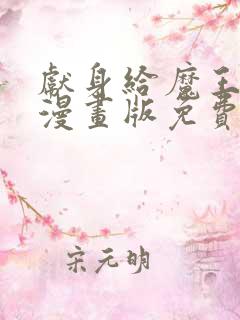 獻身給魔王
漫畫版免費
宋元明